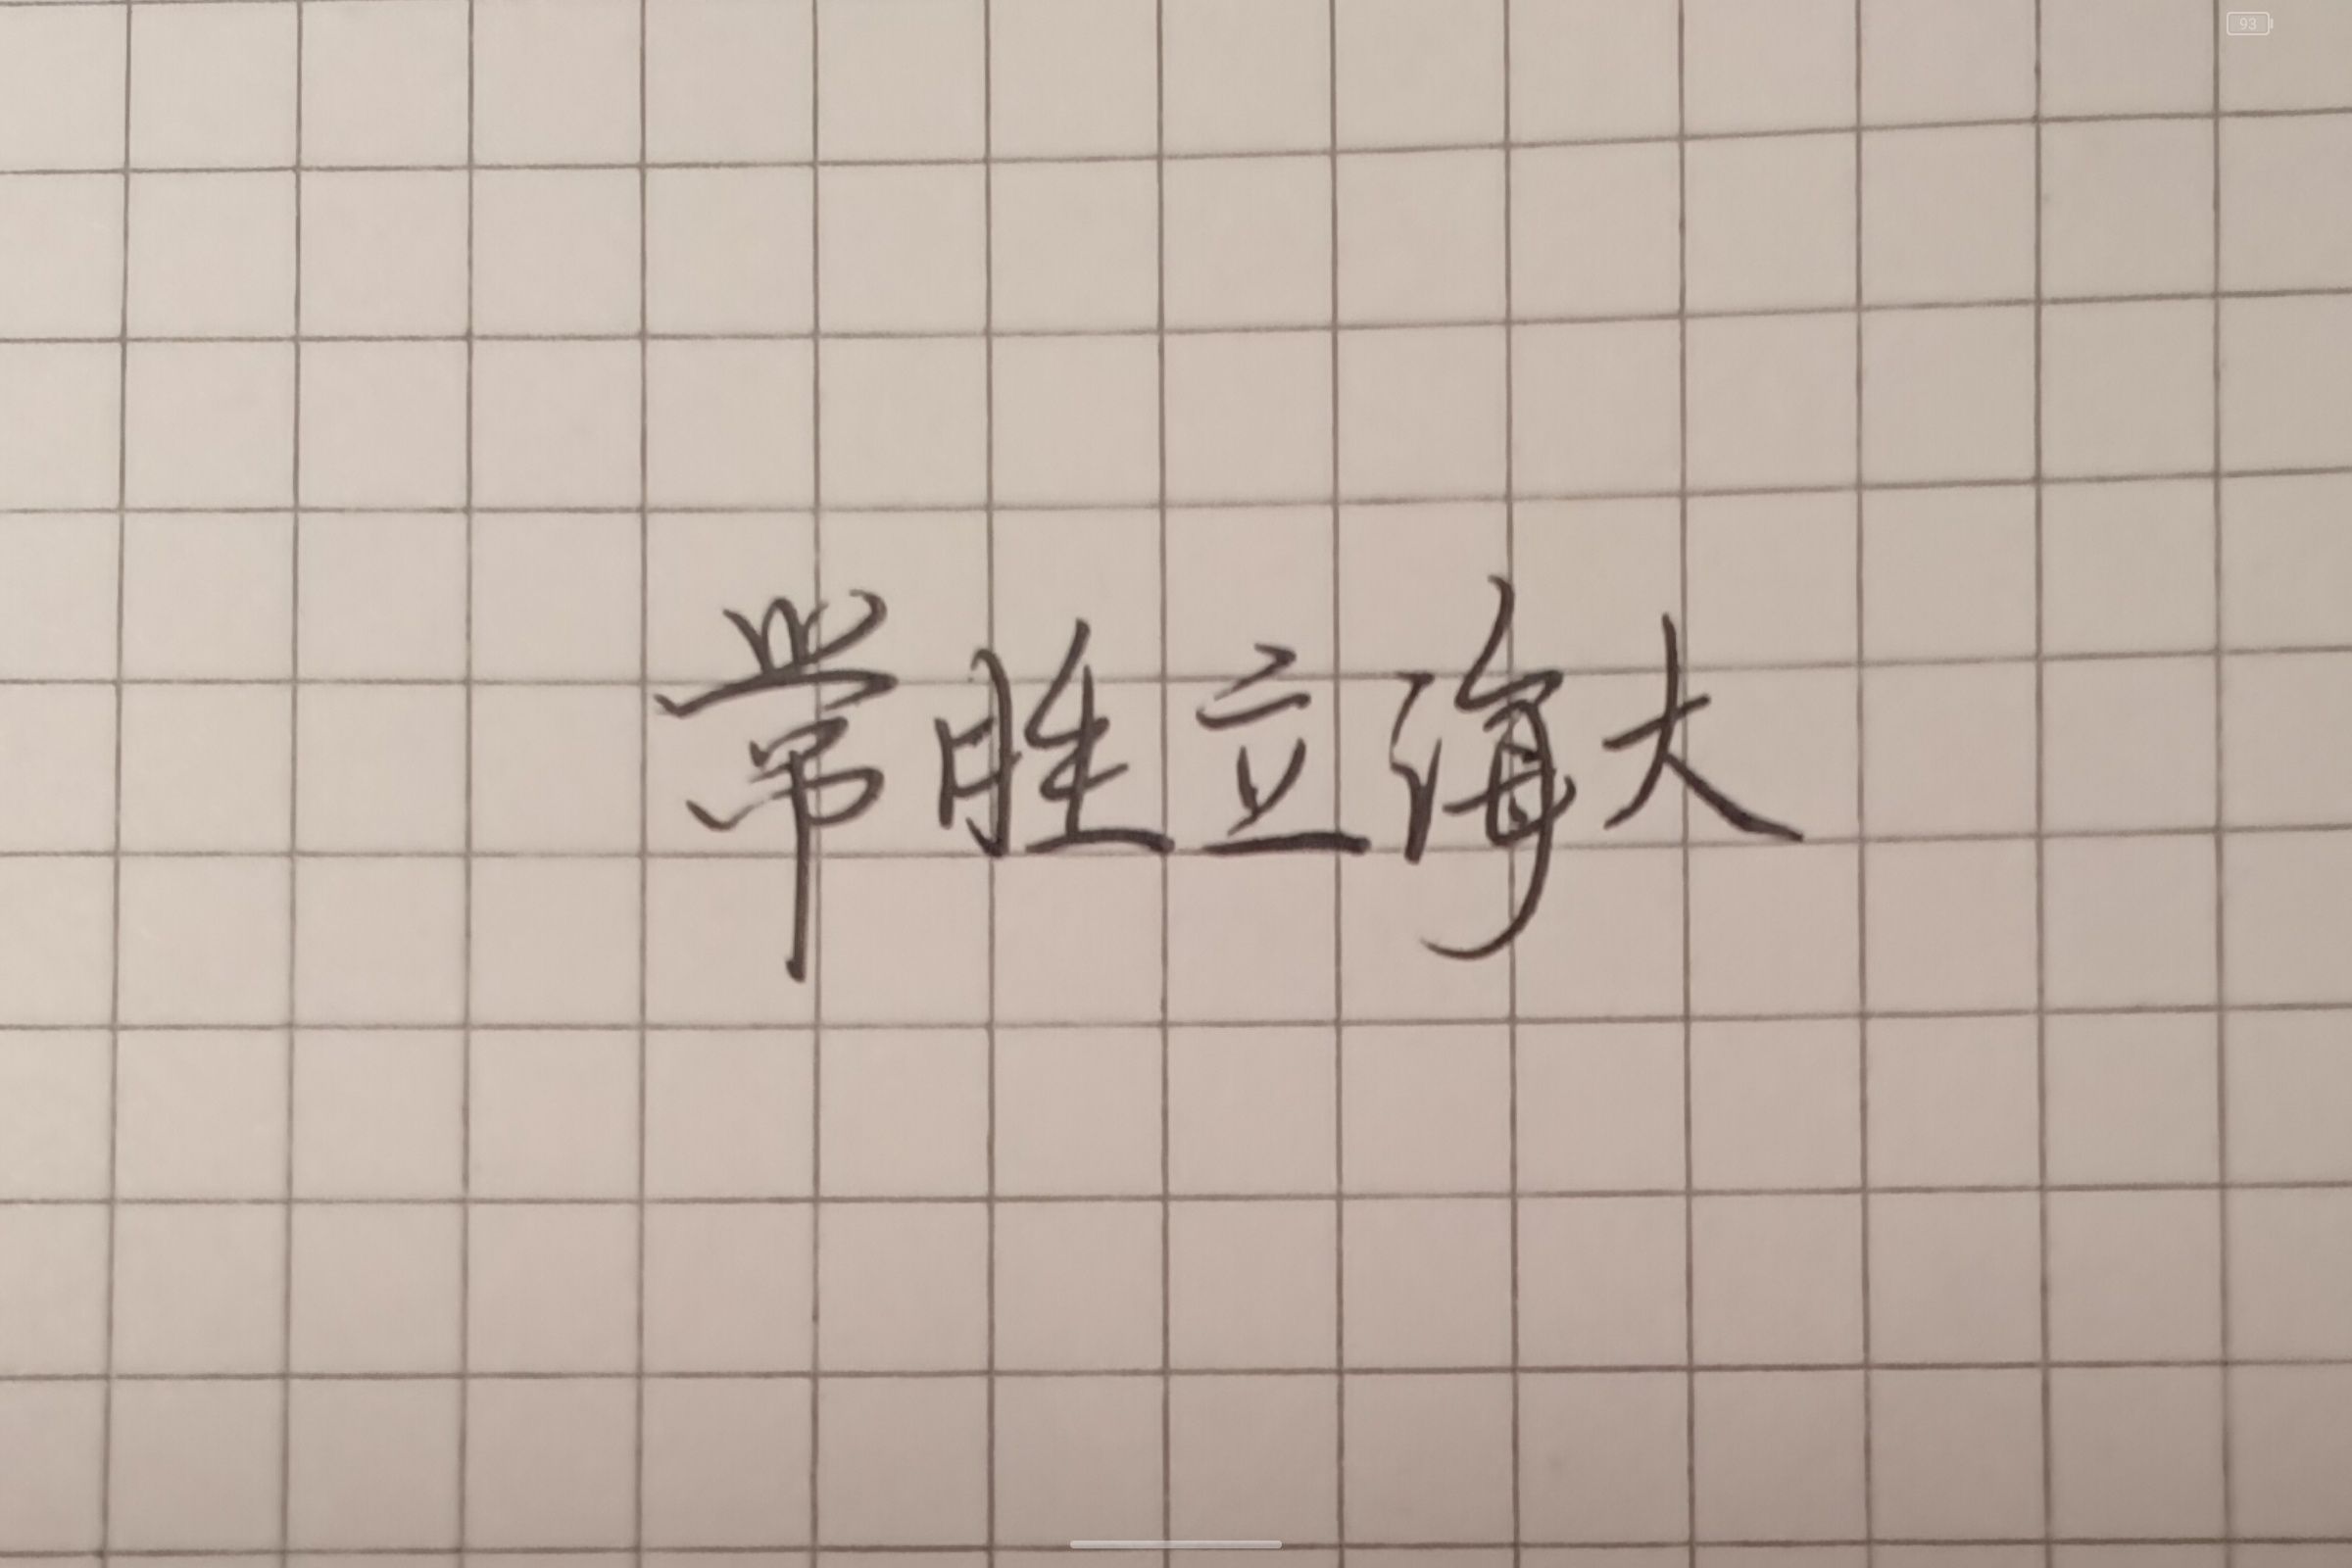 93
常胜立海大